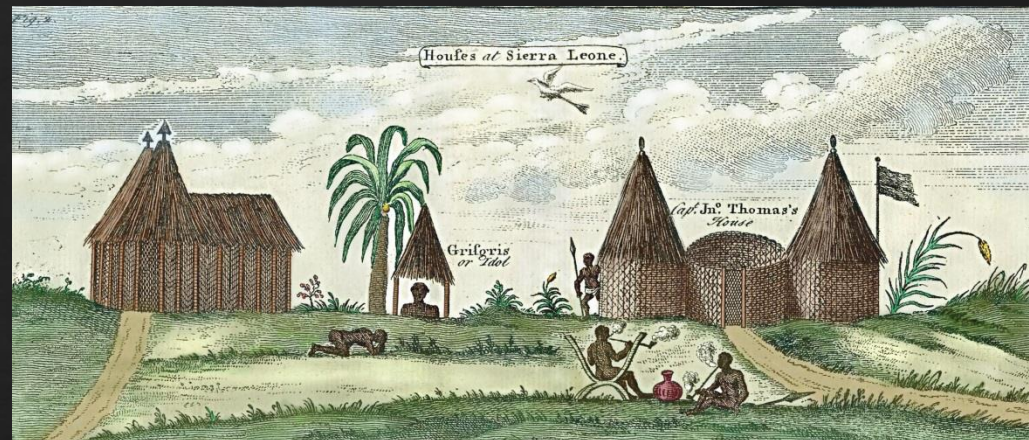 Fig. 2.
Houſes at Sierra Leone.
Griſgris
or Idol
Cap.ᵗ Jnᵒ. Thomas's
Houſe